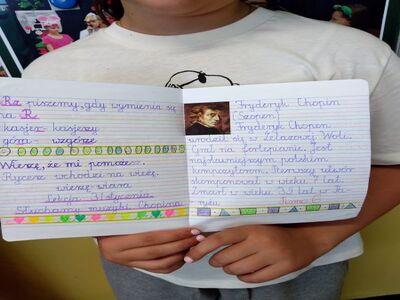 Rz piszemy, gdy wymienia się
na R.
kasjer - kasjerzy
góra - wzgórze
Wierzę, że mi pomożesz.
Rycerz wchodzi na wieżę.
wierzę - wiara
Lekcja 31 stycznia
Słuchamy muzyki Chopina
Fryderyk Chopin
[Szopen]
Fryderyk Chopen
urodził się w Żelazowej Woli.
Grał na fortepianie. Jest
najsławniejszym polskim
kompozytorem. Pierwszy utwór
skomponował w wieku 7 lat.
Zmarł w wieku 39 lat w Pa
ryżu.